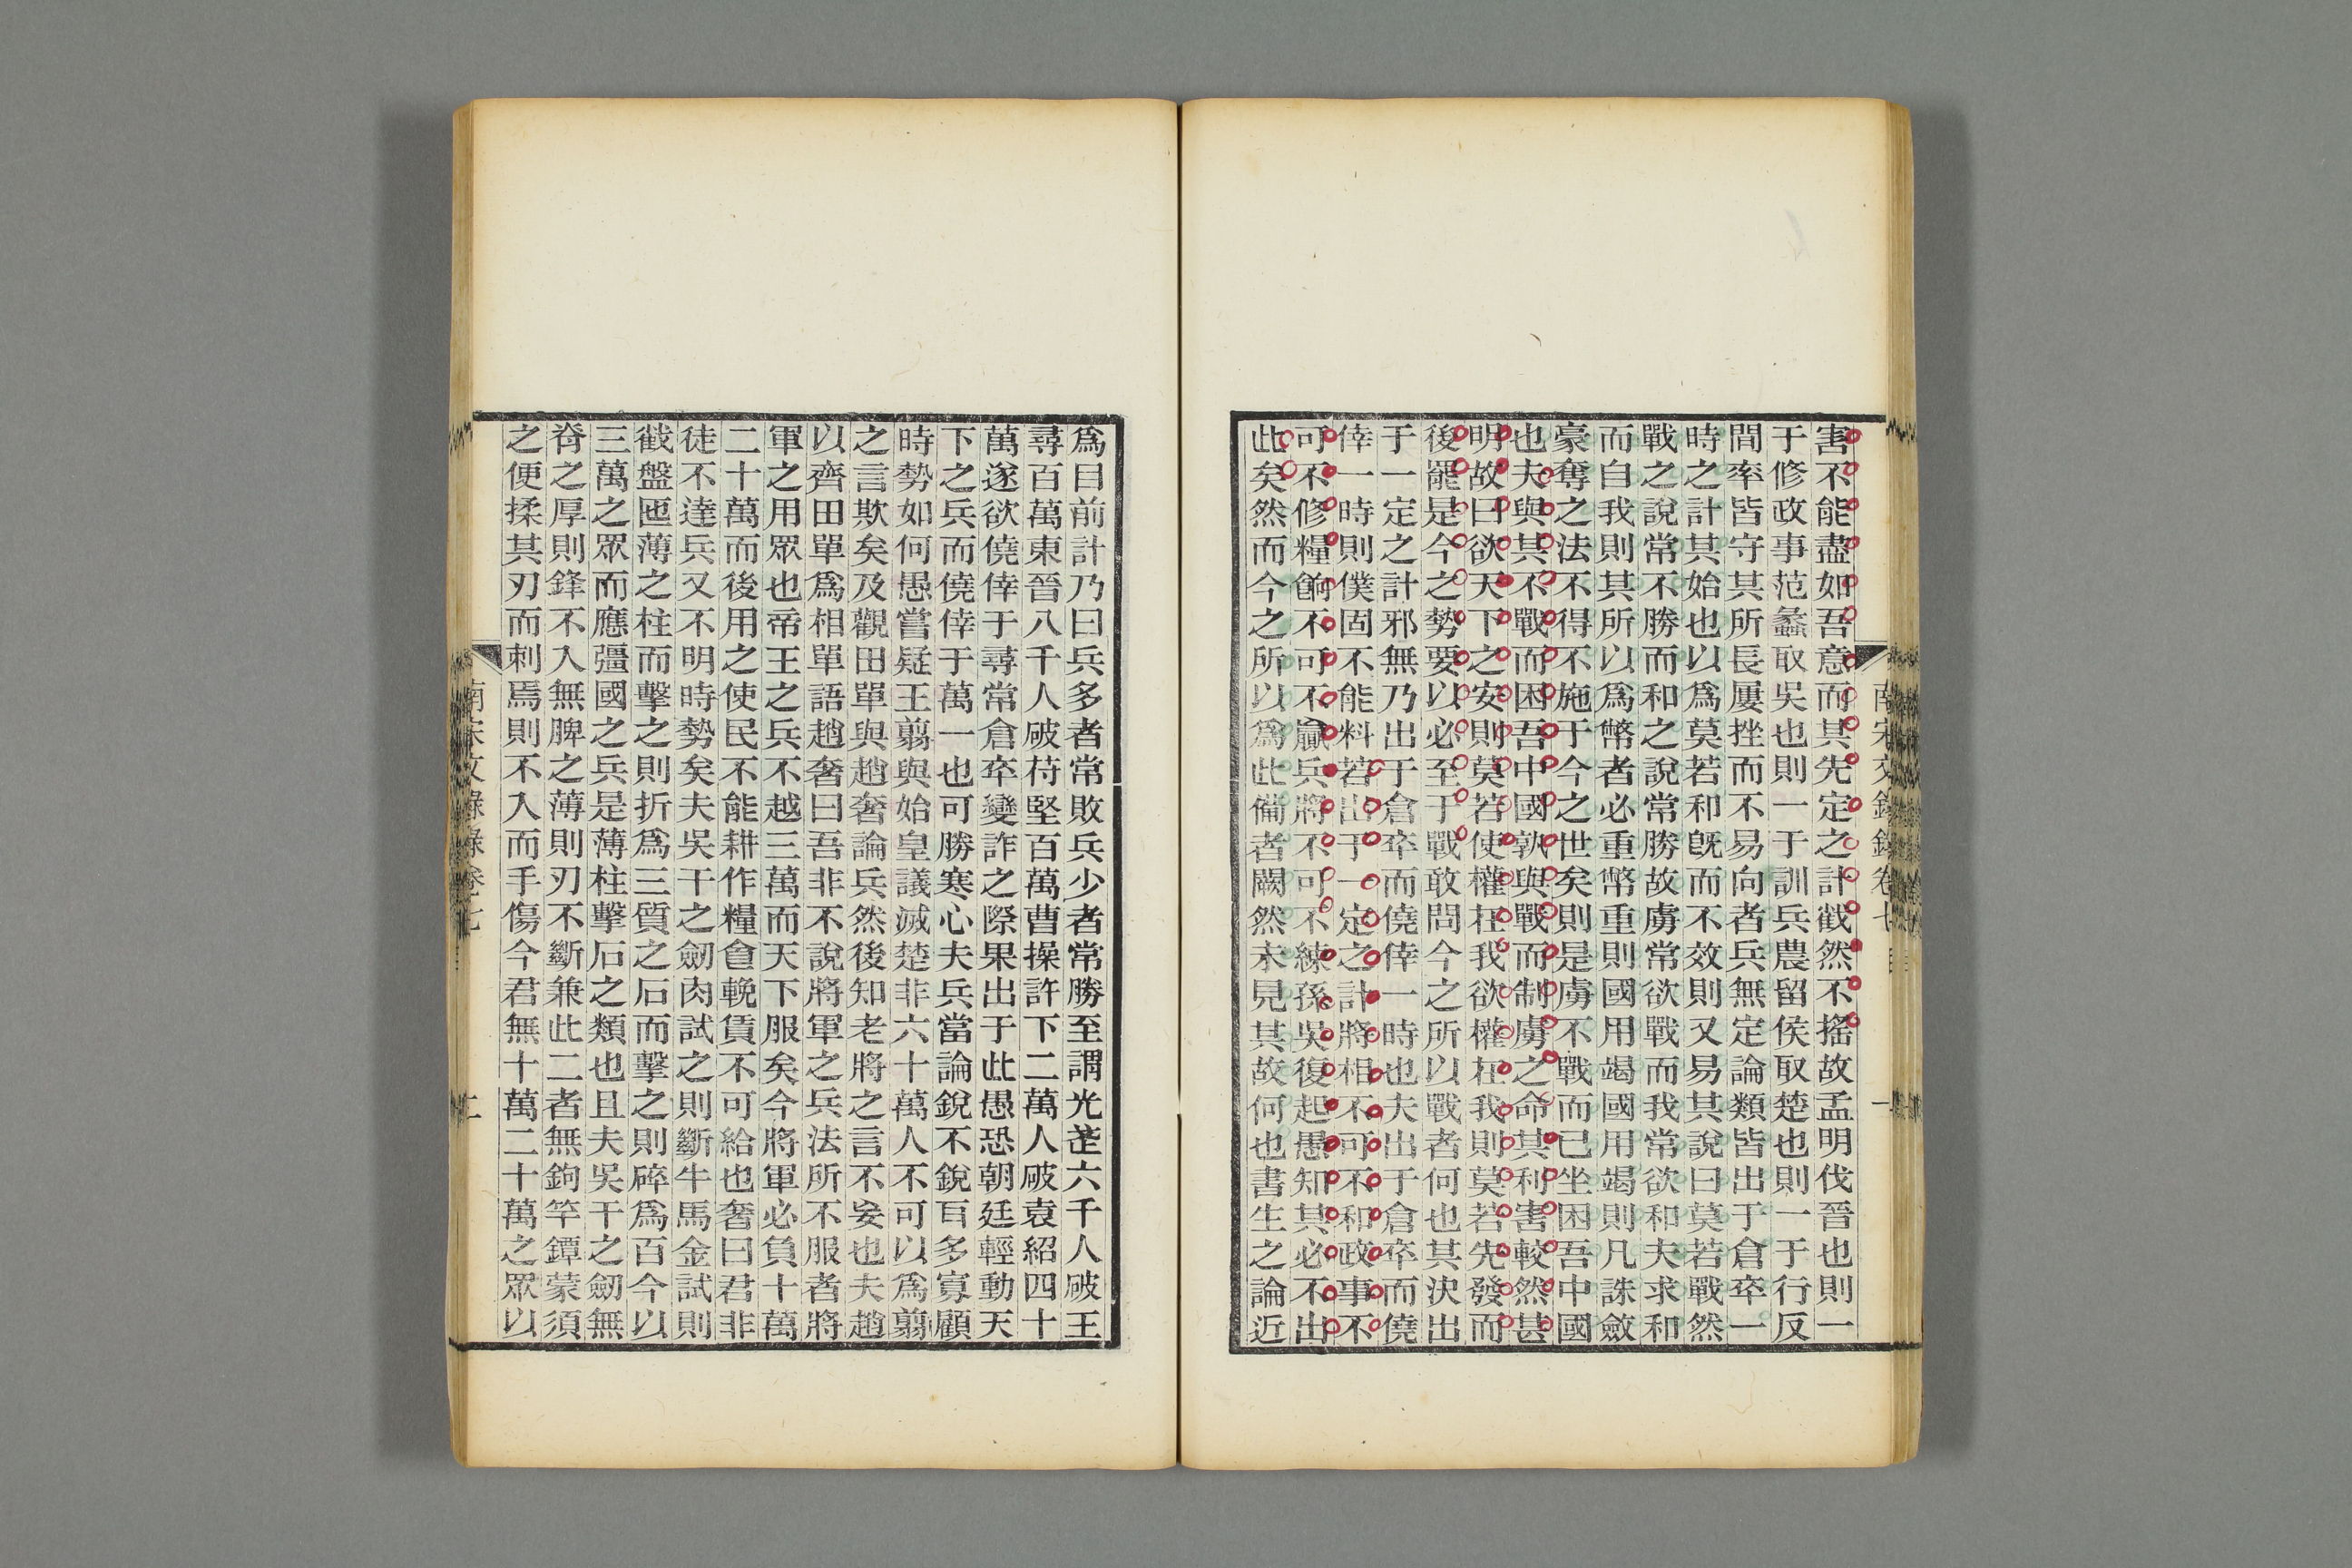 害不能盡如吾意而其先定之計截然不搖故孟明伐晉也則一
于修政事范蠡取吳也則一于訓兵農留侯取楚也則一于行反
間率皆守其所長屢挫而不易向者兵無定論類皆出于倉卒一
時之計其始也以爲莫若和旣而不效則又易其說曰莫若戰然
戰之說常不勝而和之說常勝故虜常欲戰而我常欲和夫求和
而自我則其所以爲幣者必重幣重則國用竭國用竭則凡誅斂
豪奪之法不得不施于今之世矣則是虜不戰而已坐困吾中國
也夫與其不戰而困吾中國孰與戰而制虜之命其利害較然甚
明故曰欲天下之安則莫若使權在我欲權在我則莫若先發而
後罷是今之勢要以必至于戰敢問今之所以戰者何也其決出
于一定之計邪無乃出于倉卒而僥倖一時也夫出于倉卒而僥
倖一時則僕固不能料若出于一定之計將相不可不和政事不
可不修糧餉不可不贏兵將不可不練孫吳復起愚知其必不出
此矣然而今之所以爲此備者闕然未見其故何也書生之論近
南宋文錄錄卷七
一
爲目前計乃曰兵多者常敗兵少者常勝至謂光武六千人破王
尋百萬東晉八千人破苻堅百萬曹操許下二萬人破袁紹四十
萬遂欲僥倖于尋常倉卒變詐之際果出于此愚恐朝廷輕動天
下之兵而僥倖于萬一也可勝寒心夫兵當論銳不銳百多寡顧
時勢如何愚嘗疑王翦與始皇議滅楚非六十萬人不可以爲翦
之言欺矣及觀田單與趙奢論兵然後知老將之言不妄也夫趙
以齊田單爲相單語趙奢曰吾非不說將軍之兵法所不服者將
軍之用眾也帝王之兵不越三萬而天下服矣今將軍必負十萬
二十萬而後用之使民不能耕作糧食輓賃不可給也奢曰君非
徒不達兵又不明時勢矣夫吳干之劒肉試之則斷牛馬金試則
截盤匜薄之柱而擊之則折爲三質之石而擊之則碎爲百今以
三萬之眾而應彊國之兵是薄柱擊石之類也且夫吳干之劒無
脊之厚則鋒不入無脾之薄則刃不斷兼此二者無鉤竿鐔蒙須
之便揉其刃而刺焉則不入而手傷今君無十萬二十萬之眾以
南宋文錄錄卷七
二